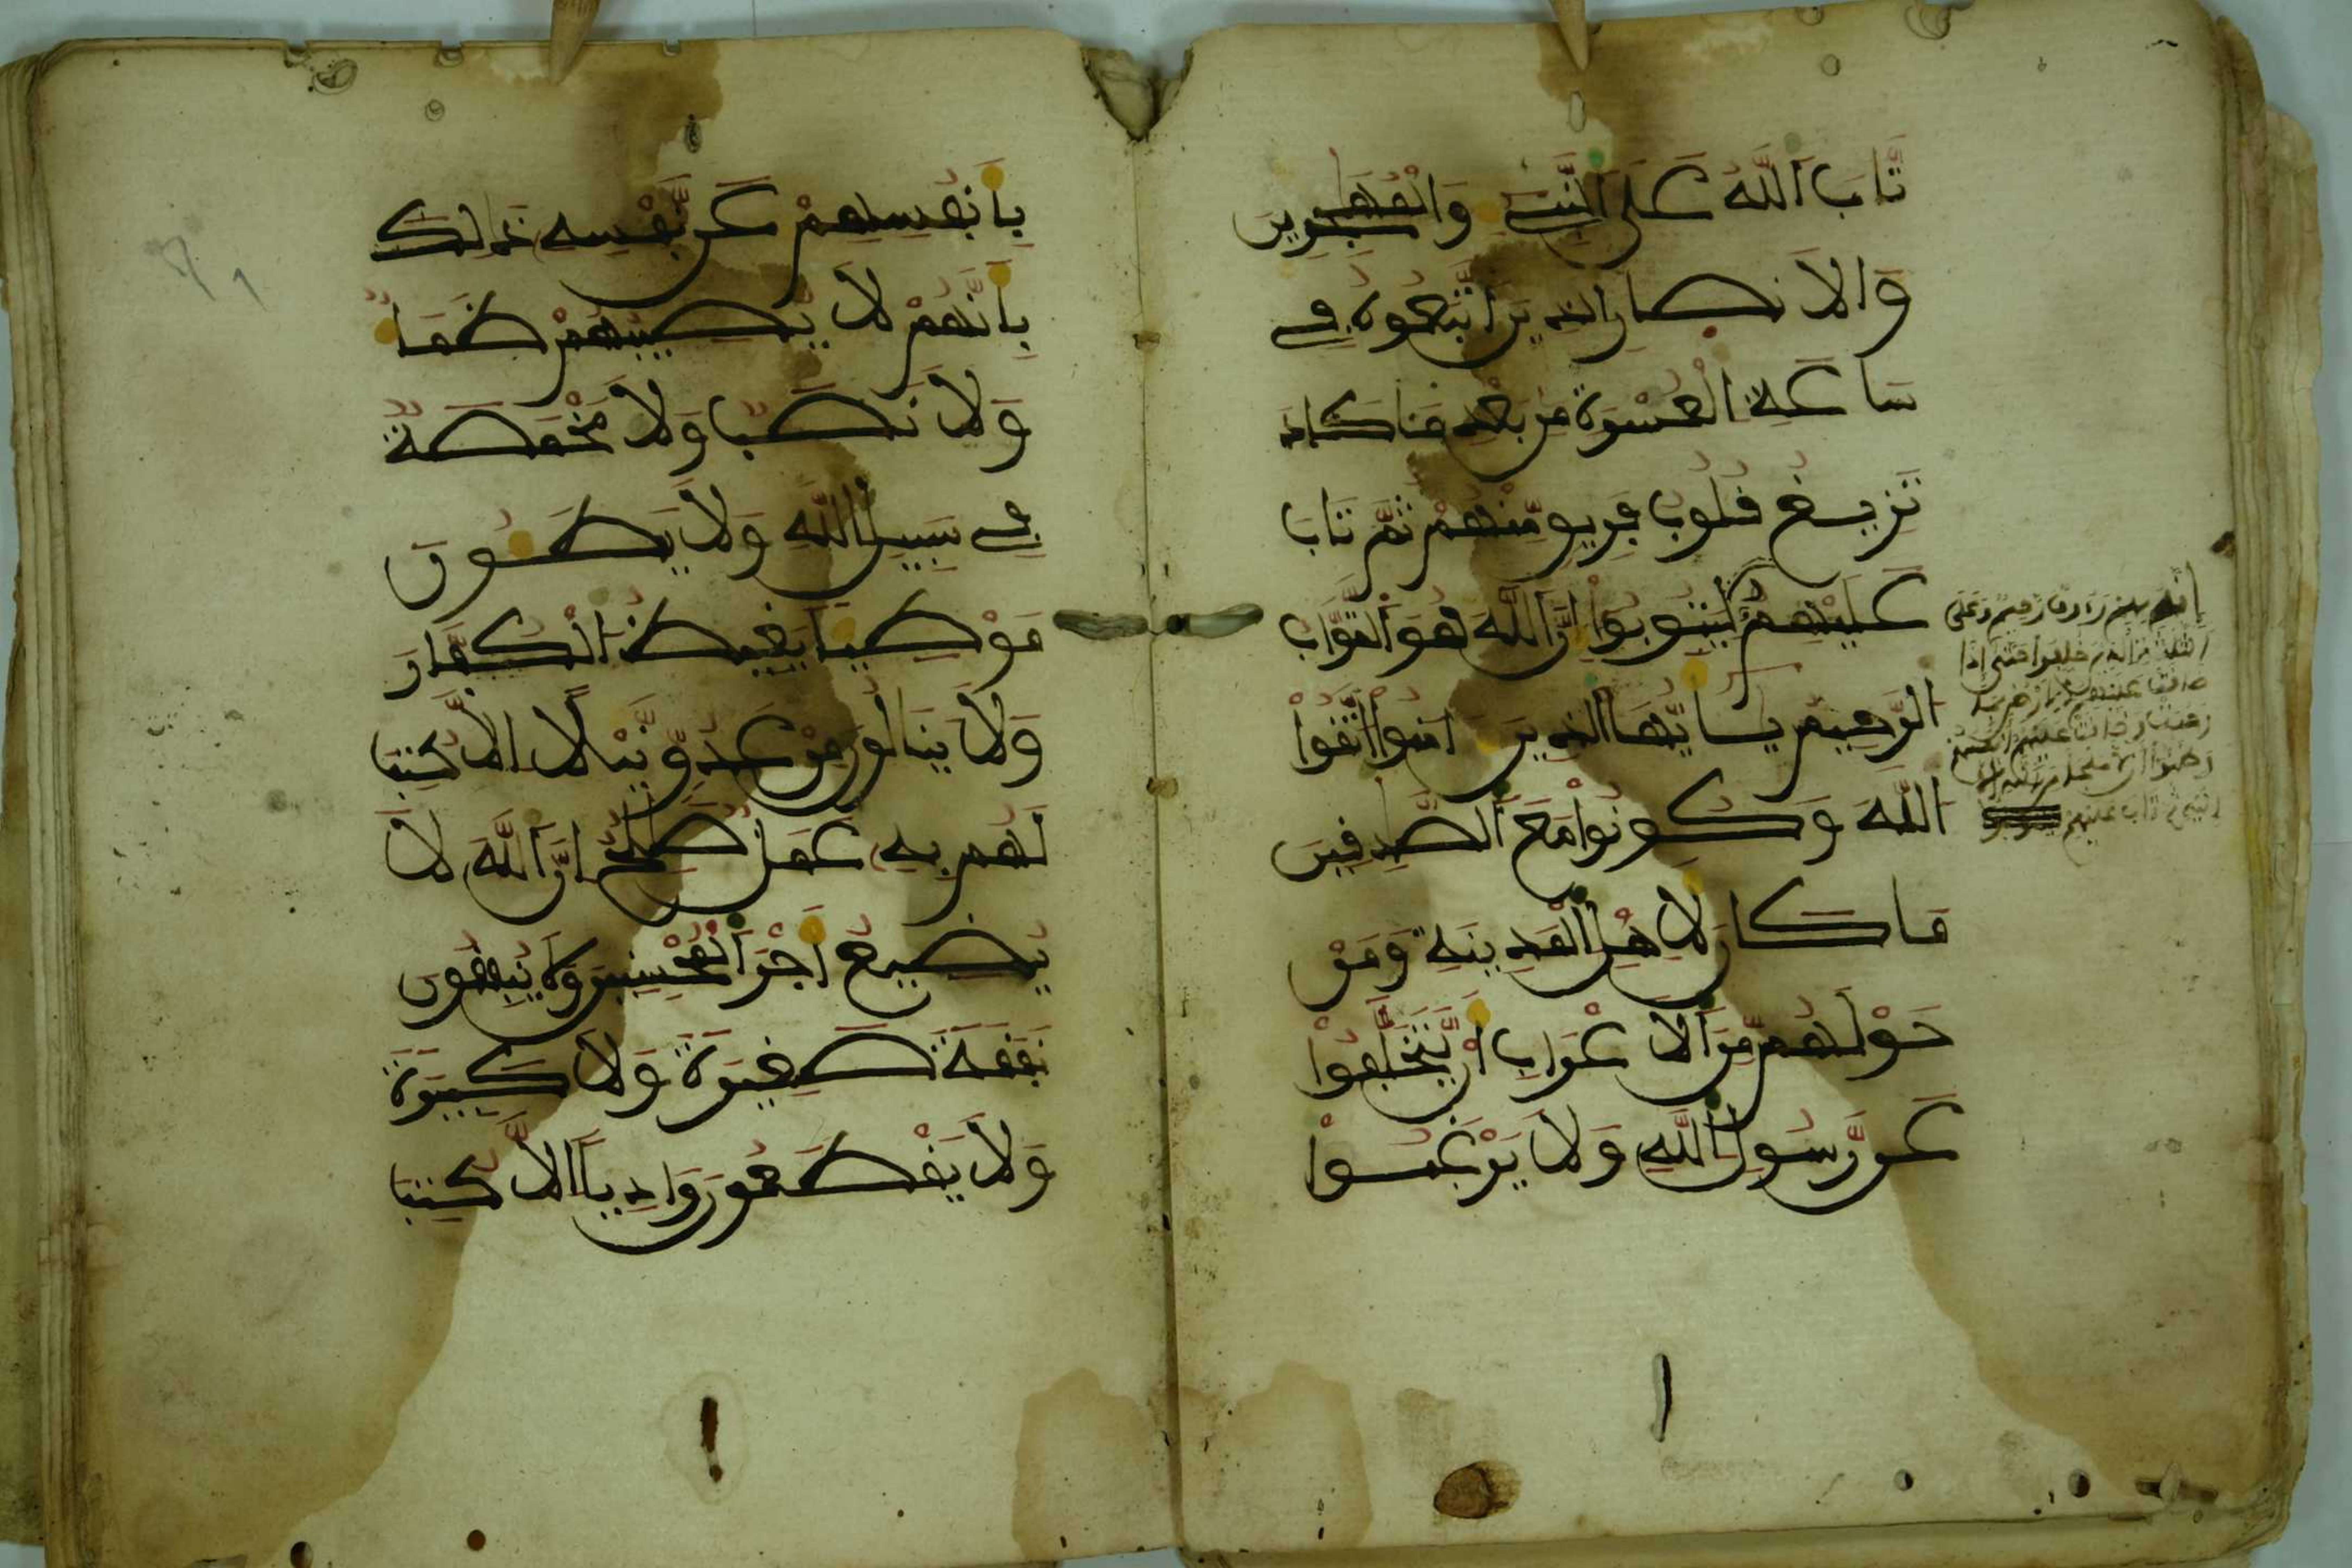 تَّابَ اَللَّهُ عَلَى اَلنَّبِےِٕ وَالْمُهَٰجِرِينَ
وَالَانصارِ الذِينَ اَتَّبَعُوهُ فِے
سَاعَةِ اِلْعُسْرَةِ مِنۢ بَعْدِ مَا كَادَ
تَزِيغُ قُلُوبُ فَرِيقٍ مِّنْهُمْ ثُمَّ تَابَ
عَلَيْهِمْ لِيَتُوبُوٓاْ إِنَّ اَللَّهَ هُوَ اَلتَّوَّابُ
الرَّحِيمُ يَٰأَيُّهَا الذِينَ ءَامَنُوا اُتَّقُواْ
اللَّهَ وَكُونُواْ مَعَ اَلصَّٰدِقِينَ
مَا كَانَ لِأَهْلِ اِلْمَدِينَةِ وَمَنْ
حَوْلَهُم مِّنَ اَلَاعْرَابِ أَنْ يَّتَخَلَّفُواْ
عَن رَّسُولِ اِللَّهِ وَلَا يَرْغَبُواْ
إنه بهم رءوف رحيم وعلى
الثلثة الذين خلفوا حتى إذا
ضاقت عليهم الارض بما
رحبت وضاقت عليهم انفسهم
وظنوا أن لا ملجأ من الله إلا
إليه ثم تاب عليهم
بِأَنفُسِهِمْ عَن نَّفْسِهِ ذَٰلِكَ
بِأَنَّهُمْ لَا يُصِيبُهُمْ ظَمَأٌ
وَلَا نَصَبٌ وَلَا مَخْمَصَةٌ
فِے سَبِيلِ اِللَّهِ وَلَا يَطَـُٔونَ
مَوْطِئاً يَغِيظُ اُلْكُفَّارَ
وَلَا يَنَالُونَ مِنْ عَدُوٍّ نَّيْلًا اِلَّا كُتِبَ
لَهُم بِهِ عَمَلٌ صَٰلِحٌ اِنَّ اَللَّهَ لَا
يُضِيعُ أَجْرَ اَلْمُحْسِنِينَ وَلَا يُنفِقُونَ
نَفَقَةً صَغِيرَةً وَلَا كَبِيرَةً
وَلَا يَقْطَعُونَ وَادِياً اِلَّا كُتِبَ